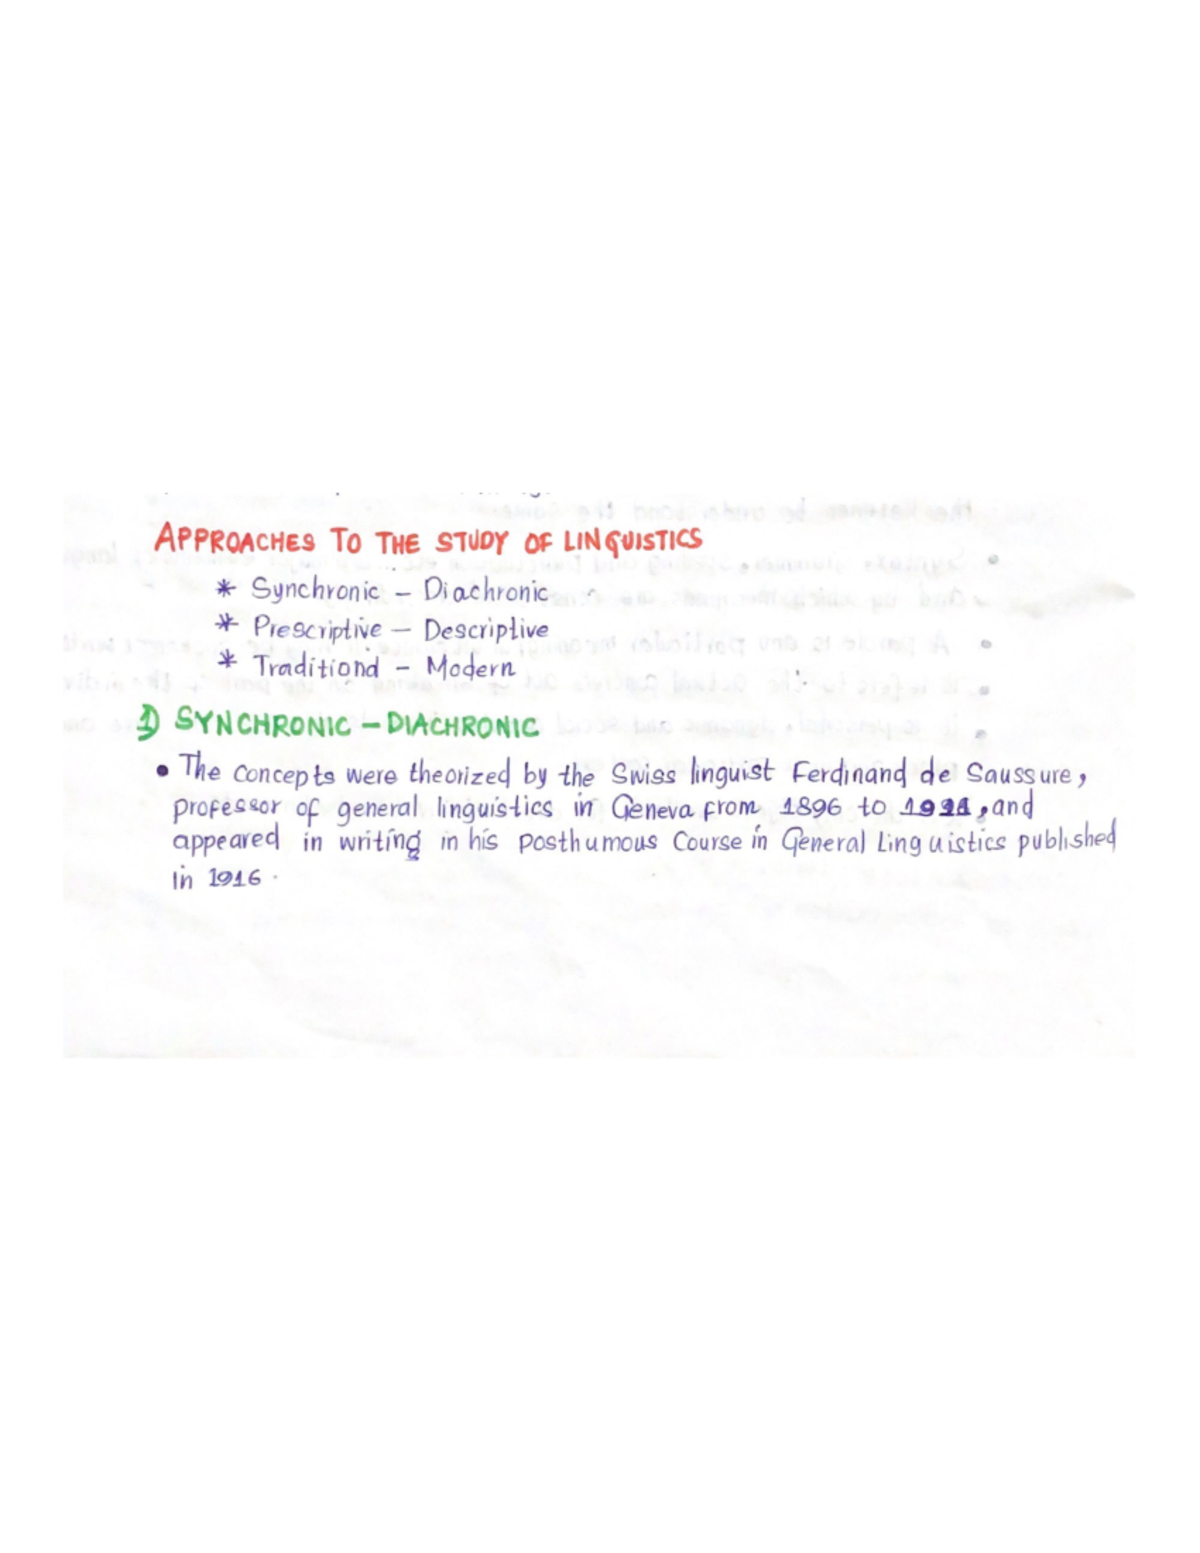 APPROACHES TO THE STUDY OF LINGUISTICS
* Synchronic – Diachronic
* Prescriptive – Descriptive
* Traditional – Modern
1) SYNCHRONIC – DIACHRONIC
• The concepts were theorized by the Swiss linguist Ferdinand de Saussure,
professor of general linguistics in Geneva from 1896 to , and
appeared in writing in his posthumous Course in General Linguistics published
in 1916.